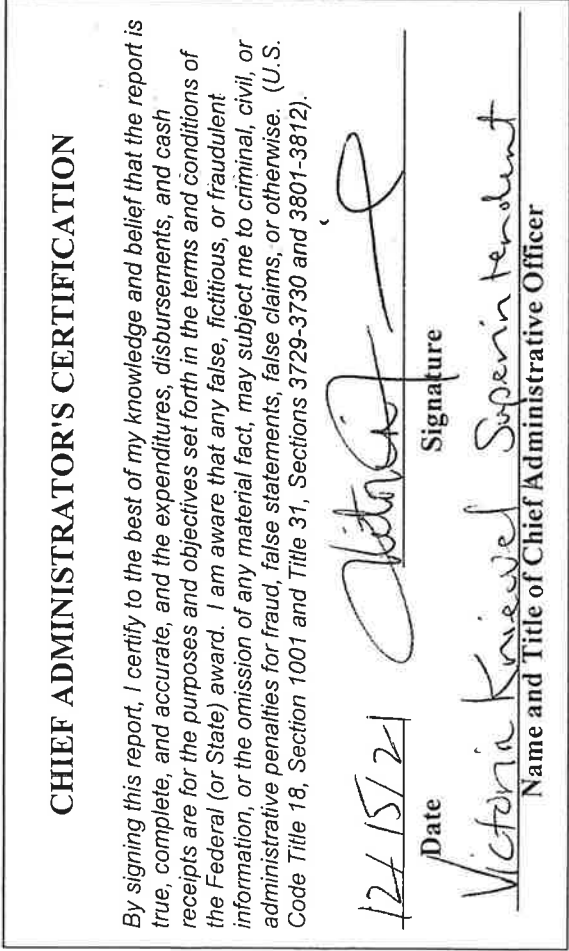 CHIEF ADMINISTRATOR'S CERTIFICATION
By signing this report, I certify to the best of my knowledge and belief that the report is
true, complete, and accurate, and the expenditures, disbursements, and cash
receipts are for the purposes and objectives set forth in the terms and conditions of
the Federal (or State) award. I am aware that any false, fictitious, or fraudulent
information, or the omission of any material fact, may subject me to criminal, civil, or
administrative penalties for fraud, false statements, false claims, or otherwise. (U.S.
Code Title 18, Section 1001 and Title 31, Sections 3729-3730 and 3801-3812).
12/15/21
Date Signature
Victoria Knievel Superintendent
Name and Title of Chief Administrative Officer